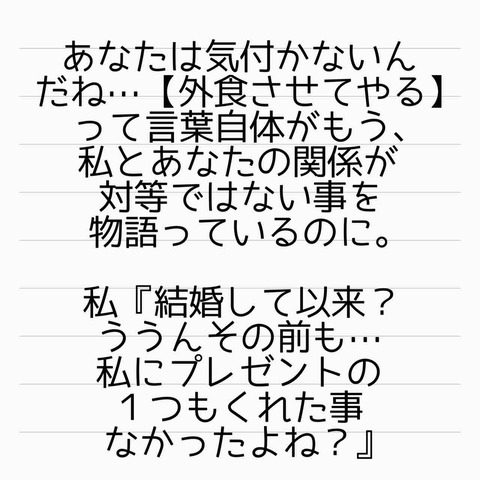 あなたは気付かないん
だね…【外食させてやる】
って言葉自体がもう、
私とあなたの関係が
対等ではない事を
物語っているのに。
私『結婚して以来？
ううんその前も…
私にプレゼントの
１つもくれた事
なかったよね？』